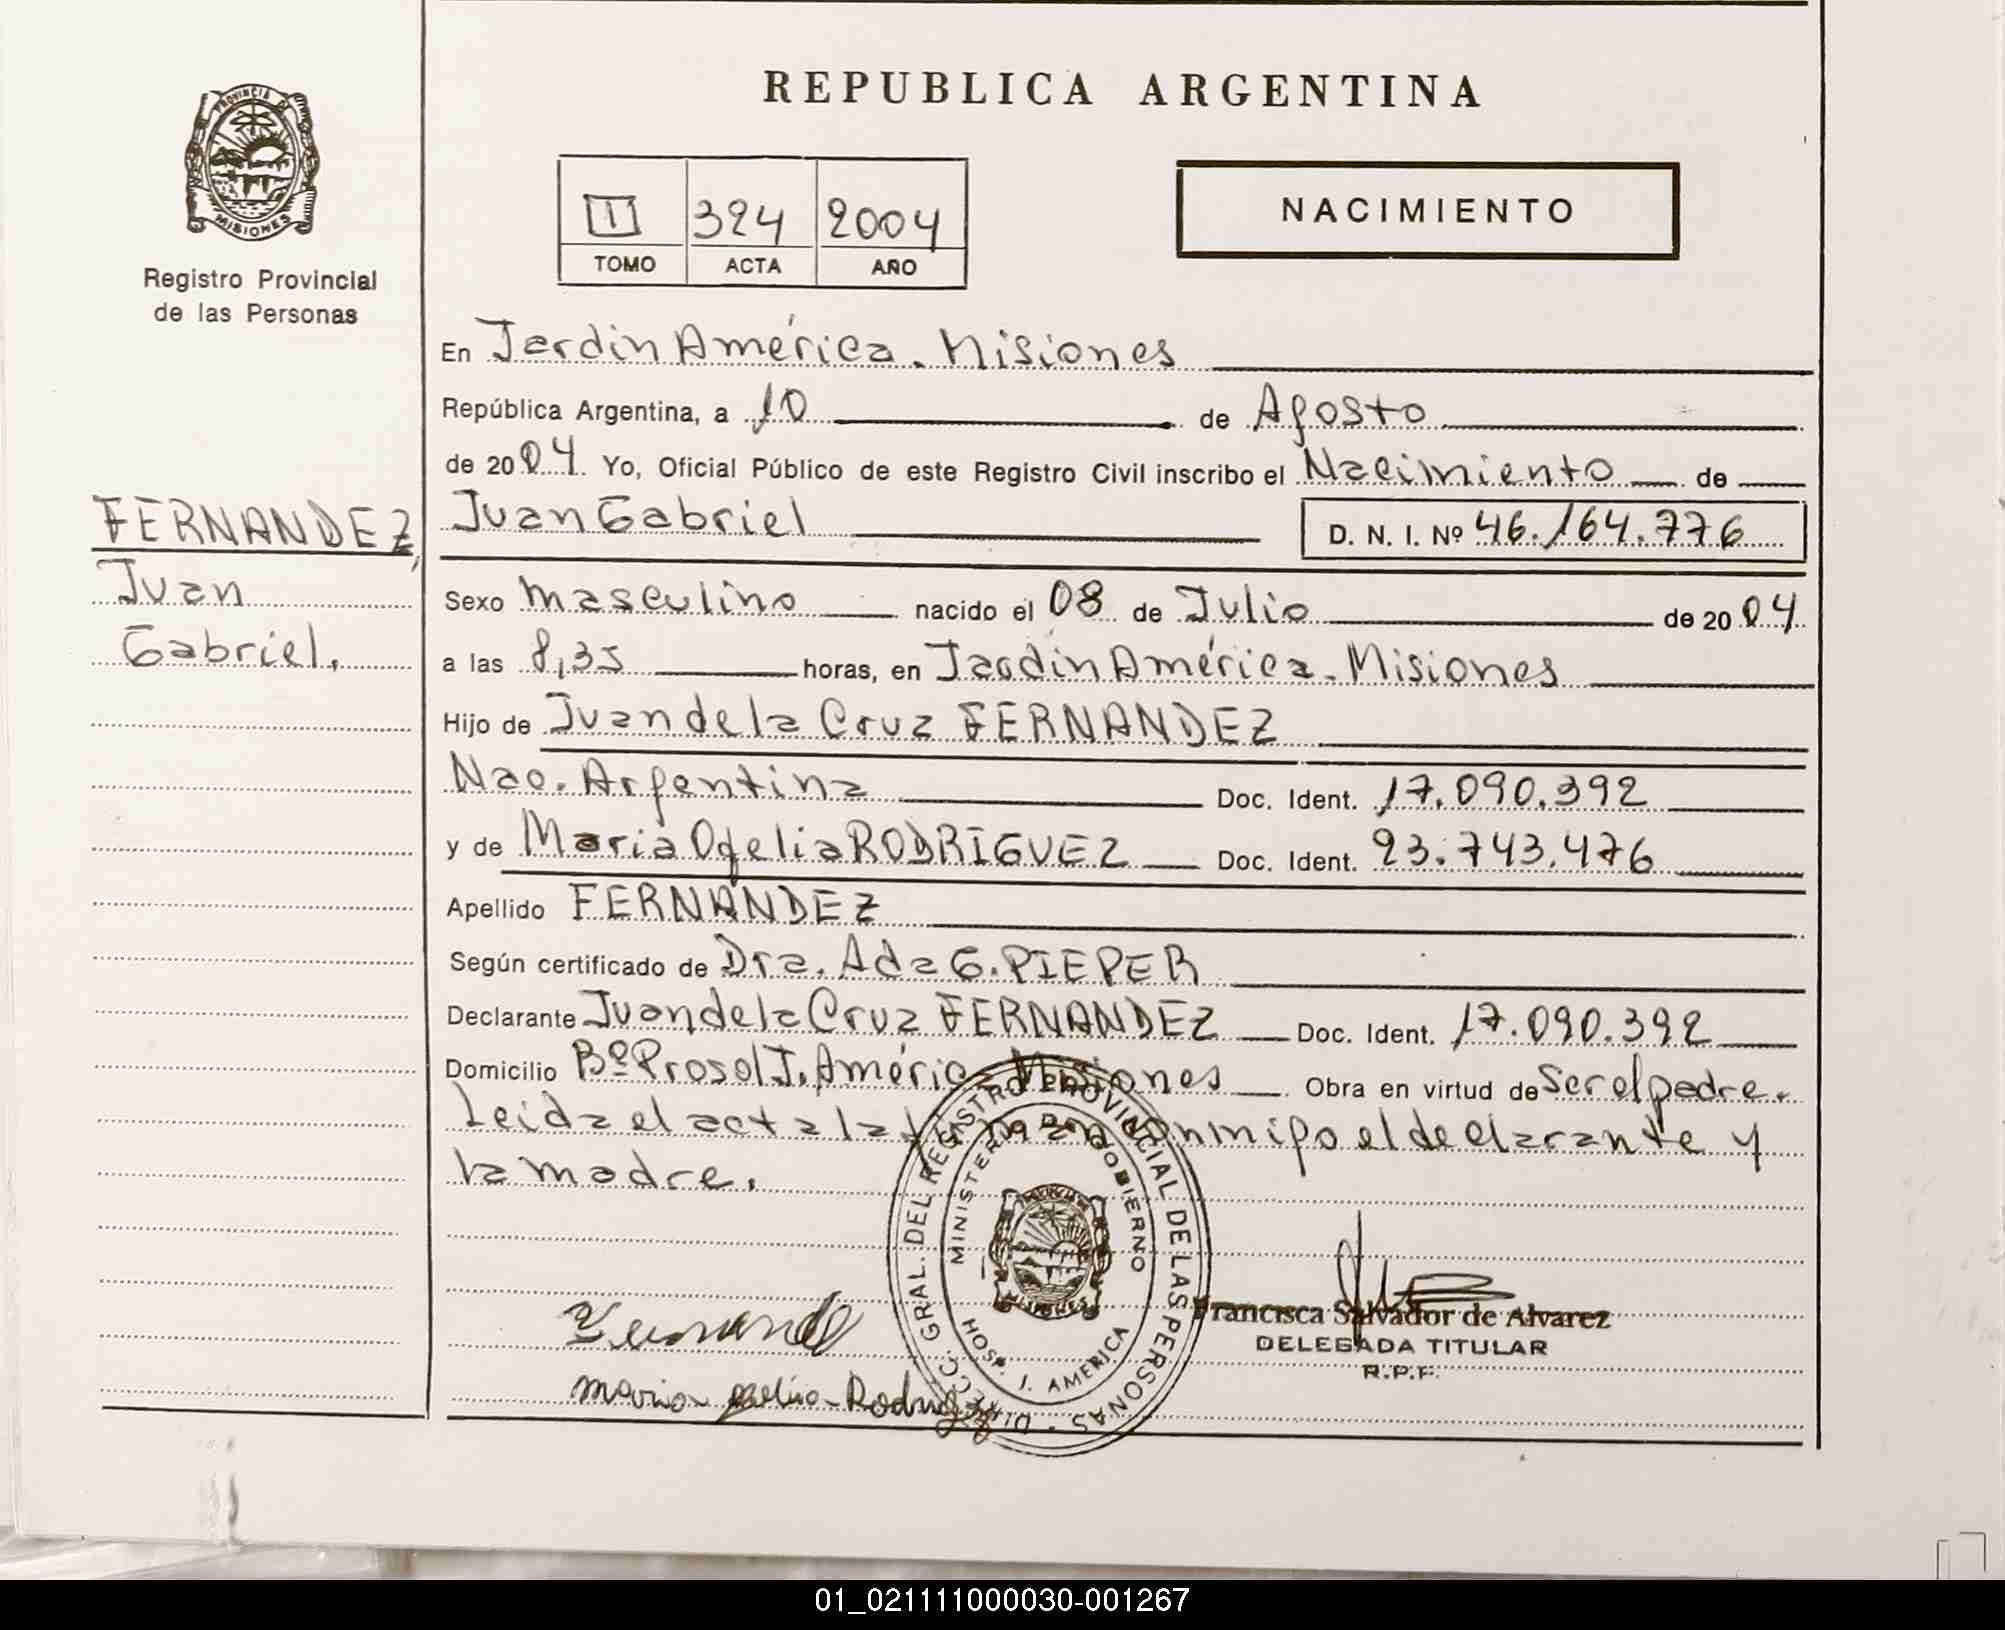 REPUBLICA ARGENTINA
PROVINCIA DE
MISIONES
Registro Provincial
de las Personas
I 324 2004
TOMO ACTA AÑO
NACIMIENTO
En Jardín América. Misiones
República Argentina, a 10 de Agosto
de 2004. Yo, Oficial Público de este Registro Civil inscribo el Nacimiento de
FERNANDEZ,
Juan
Gabriel.
Juan Gabriel D. N. I. Nº 46.164.776
Sexo masculino nacido el 08 de Julio de 2004
a las 8,35 horas, en Jardín América. Misiones
Hijo de Juan de la Cruz FERNANDEZ
Nac. Argentina Doc. Ident. 17.090.392
y de María Ofelia RODRIGUEZ Doc. Ident. 93.743.476
Apellido FERNANDEZ
Según certificado de Dra. Ada G. PIEPER
Declarante Juan de la Cruz FERNANDEZ Doc. Ident. 17.090.392
Domicilio Bº Prosol J. América Misiones Obra en virtud de Ser el padre.
Leida el acta la firman conmigo el declarante y
la madre.
DIRECC. GRAL. DEL REGISTRO PROVINCIAL DE LAS PERSONAS
MINISTERIO DE GOBIERNO
MISIONES
HOSP. J. AMERICA
Francisca Salvador de Alvarez
DELEGADA TITULAR
R.P.F.
Maria Ofelia Rodriguez
01_021111000030-001267